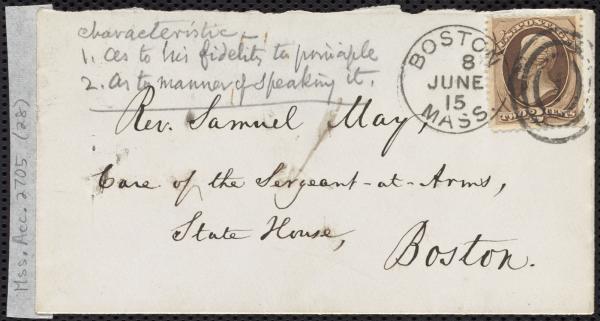 characteristic -
1. As to his fidelity to principle
2. As to manner of speaking it.
BOSTON
8
JUNE
15
MASS.
TWO CENTS
Rev. Samuel May,
Care of the Sergeant-at-Arms,
State House,
Boston.
Mss. Acc. 2705 (28)